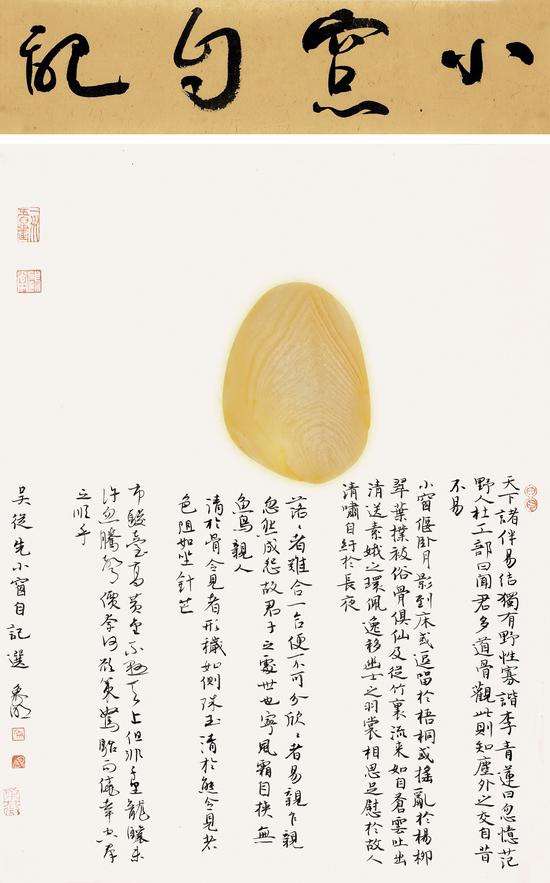 小窗自記
天下諸伴易結獨有野性寡諧李青蓮曰忽憶范
野人杜工部曰聞君多道骨觀此則知塵外之交自昔
不易
小窗偃卧月影到床或逗留於梧桐或搖亂於楊柳
翠葉撲被俗骨俱仙及從竹裏流來如自蒼雲吐出
清送素娥之環佩逸移幽士之羽裳相思足慰於故人
清嘯自紓於長夜
落々者難合一合便不可分欣々者易親乍親
忽然成怨故君子之處世也寧風霜自挾無
魚鳥親人
清於骨令見者形穢如側珠玉清於態令見者
色阻如坐針芒
市駿臺高黃金不上但非千里龍驤未
許忽騰聲價奈何欲策駑駘而僥幸
之順乎
吳從先小窗自記選